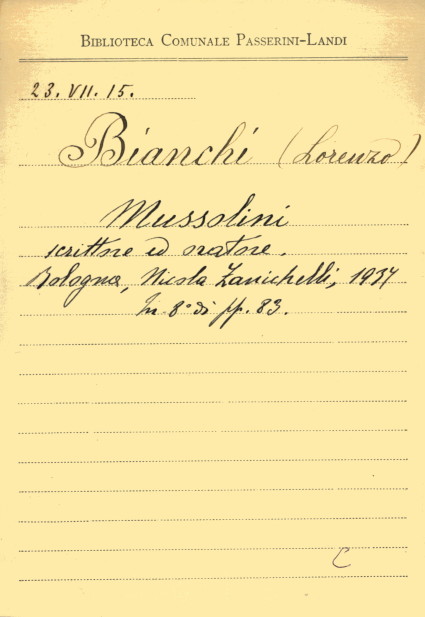 BIBLIOTECA COMUNALE PASSERINI-LANDI
23. VII. 15.
Bianchi (Lorenzo)
Mussolini
scrittore ed oratore.
Bologna, Nicola Zanichelli, 1937
In 8° di pp. 83.
C